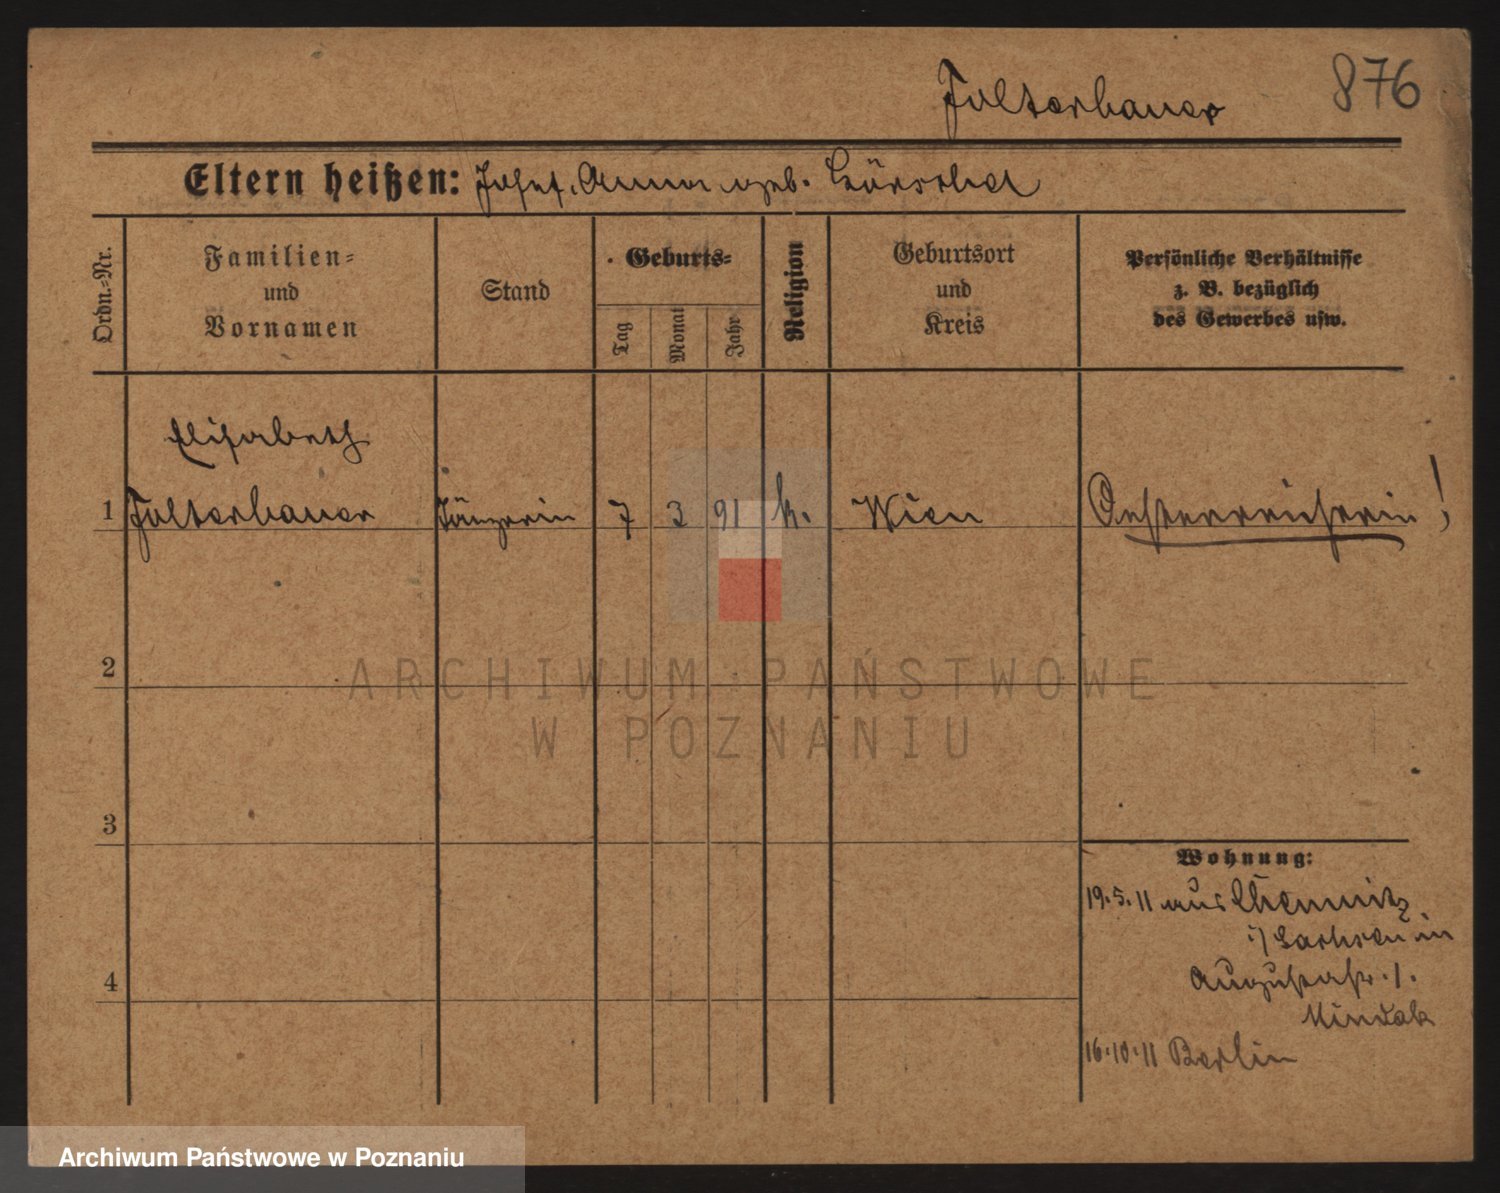 Falterbauer 876
Eltern heißen: Josef, Anna geb.
Ordn.=Nr.
Familien=
und
Vornamen
Stand
Geburts=
Tag
Monat
Jahr
Religion
Geburtsort
und
Kreis
Persönliche Verhältnisse
z. B. bezüglich
des Gewerbes usw.
Elisabeth
1 Falterbauer Tänzerin 7 3 91 k. Wien Oesterreicherin!
2
3
4
Wohnung:
19.5.11 aus Chemnitz
i/ Sachsen in
Augustastr. 1.
16.10.11 Berlin
ARCHIWUM PAŃSTWOWE
W POZNANIU
Archiwum Państwowe w Poznaniu